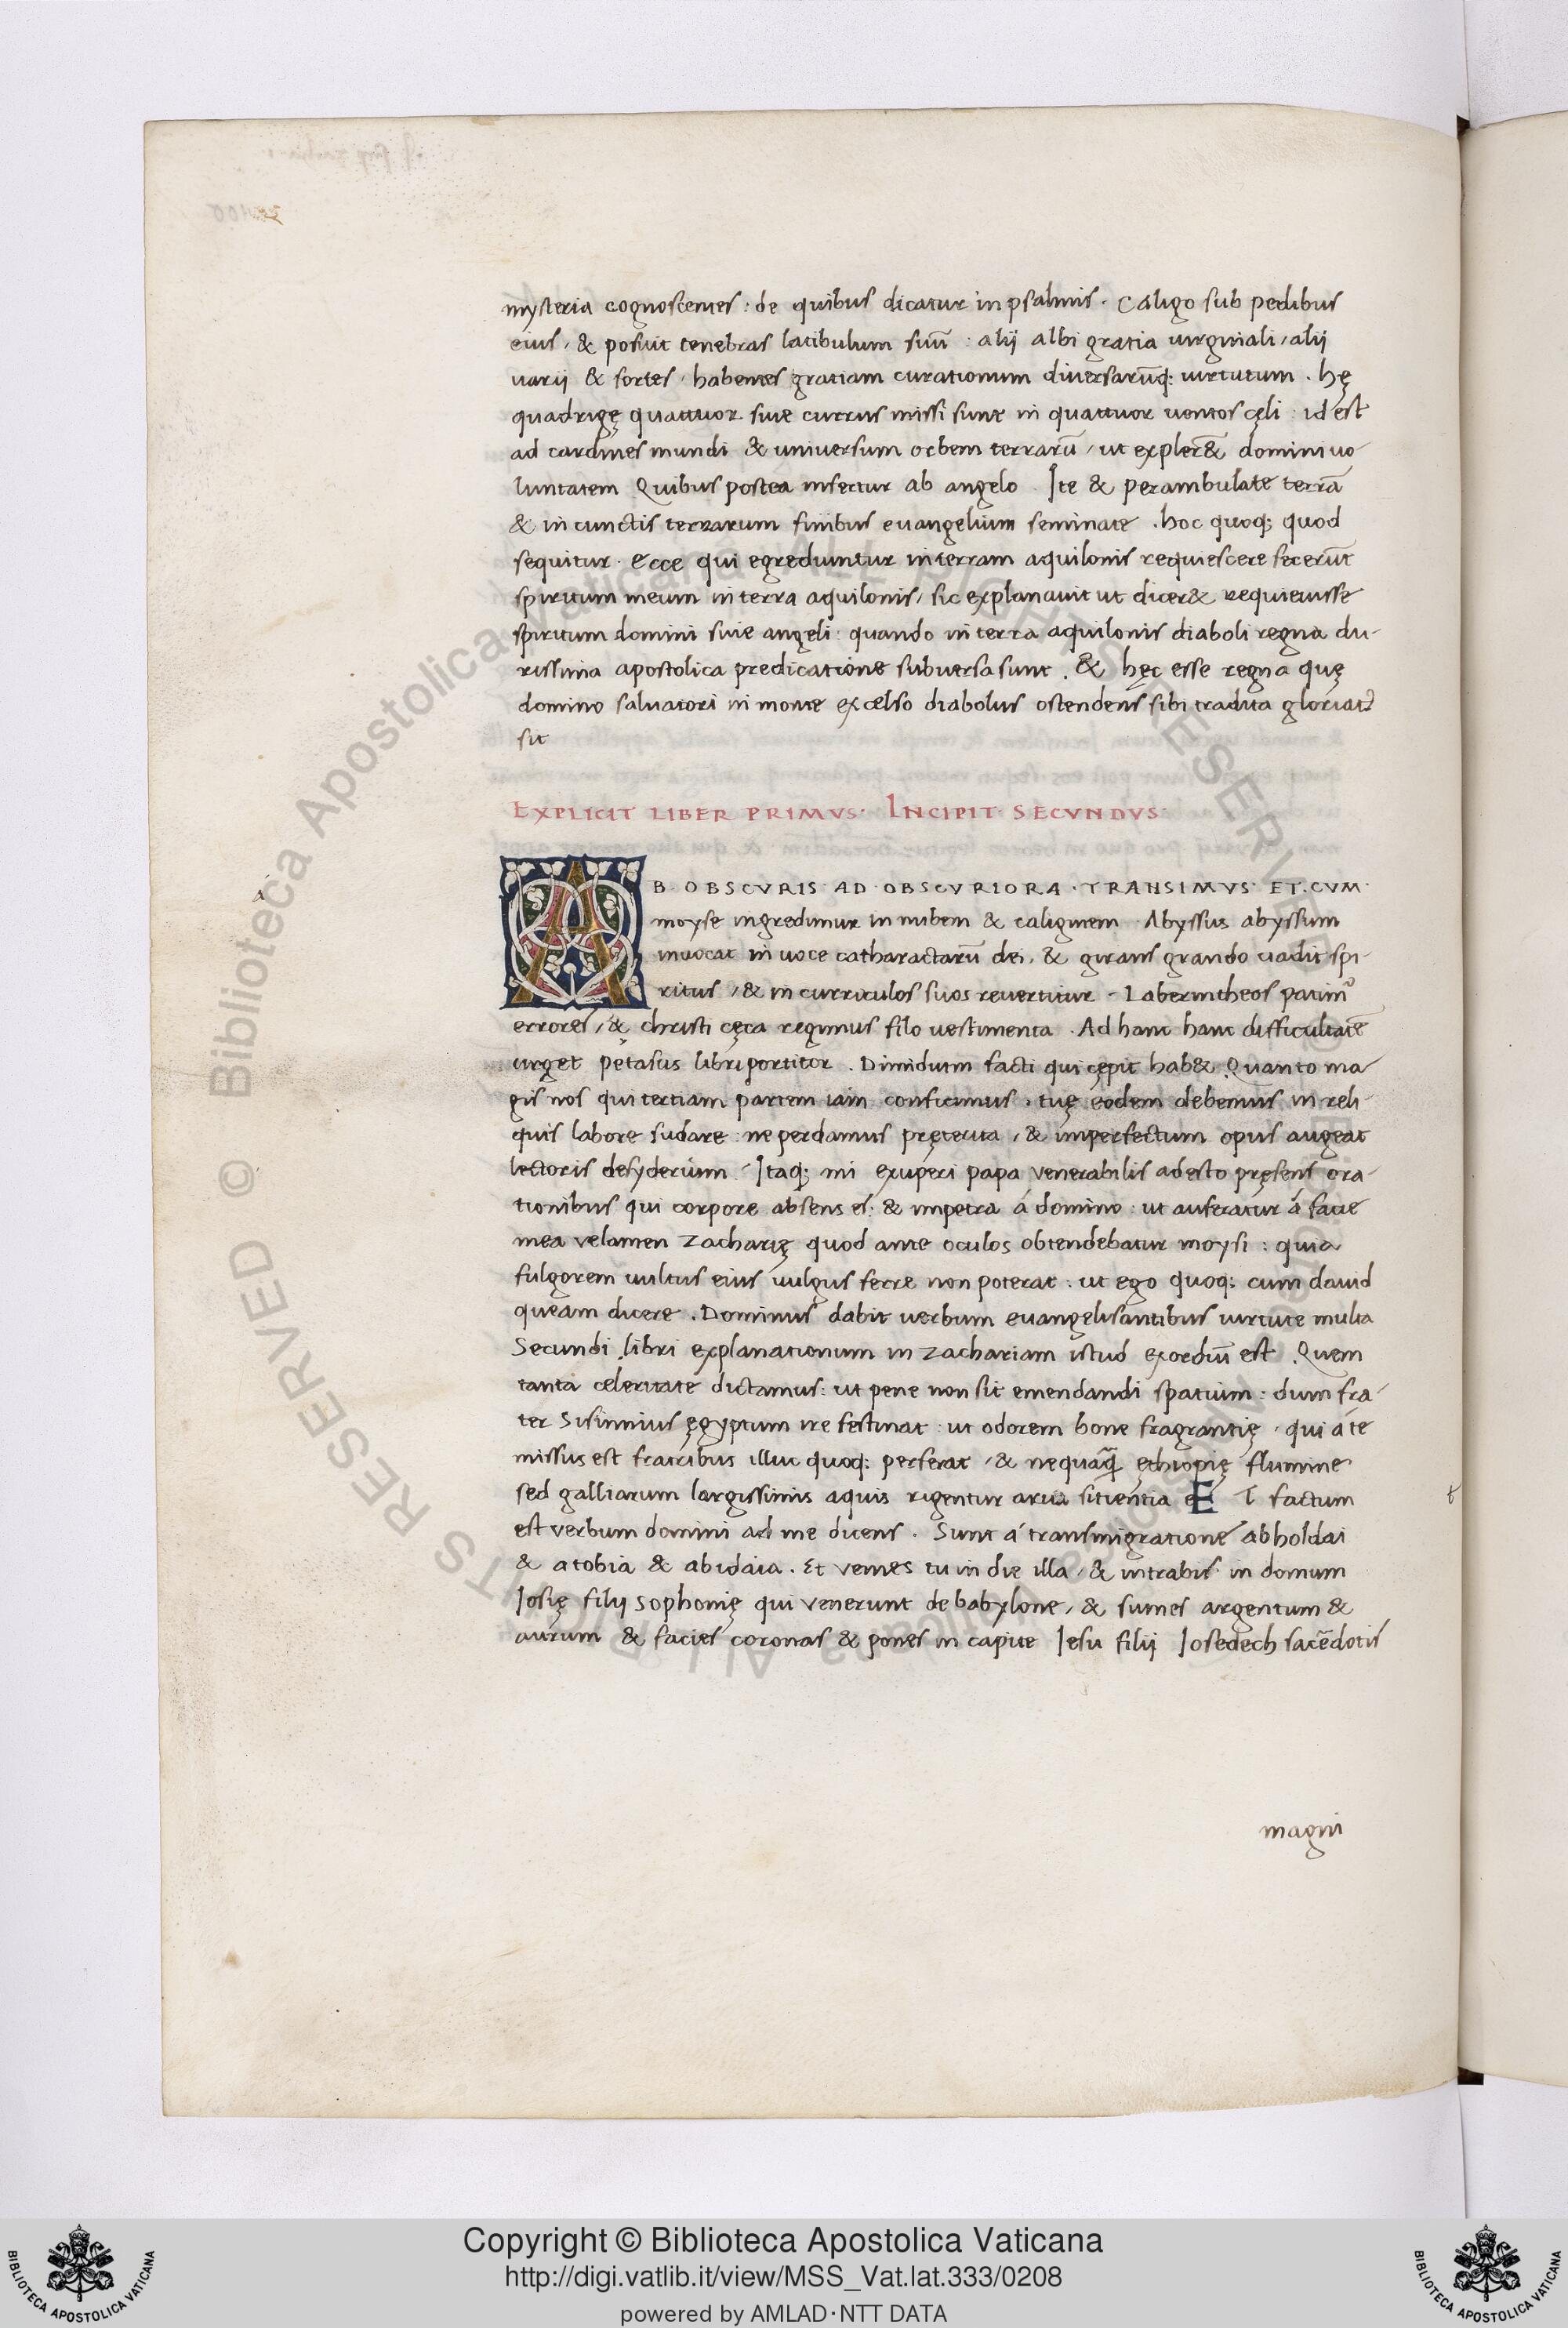 mysteria cognoscentes : de quibus dicatur in psalmis . Caligo sub pedibus
eius / & posuit tenebras latibulum suū : alij albi gratia uirginali / alij
uarij & fortes / habentes gratiam curationum diuersarūq; uirtutum . hę
quadrigę quattuor siue currus missi sunt in quattuor uentos cęli : id est
ad cardines mundi & uniuersum orbem terrarū / ut expler&̄ domini uo-
luntatem Quibus postea infertur ab angelo . Ite & perambulate terrā
& in cunctis terrarum finibus euangelium seminate . hoc quoq; quod
sequitur . Ecce qui egrediuntur in terram aquilonis requiescere fecerūt
spiritum meum in terra aquilonis / sic explanauit ut dicer& requieuisse
spiritum domini siue angeli : quando in terra aquilonis diaboli regna du-
rissima apostolica predicatione subuersa sunt . & hęc esse regna quę
domino saluatori in monte excelso diabolus ostendens sibi tradita gloriat᷑
sit
EXPLICIT LIBER PRIMVS · INCIPIT · SECVNDVS ·
AB · OBSCVRIS · AD · OBSCVRIORA · TRANSIMVS · ET · CVM ·
moyse ingredimur in nubem & caliginem . Abyssus abyssum
inuocat in uoce catharactarū dei , & girans girando uadit spi-
ritus / & in curriculos suos reuertitur - Laberintheos patim᷑
errores / & christi cęca regimus filo uestimenta . Ad hanc hanc difficultatē
urget petasus libri portitor . Dimidium facti qui cępit hab& . Quanto ma-
gis nos qui tertiam partem iam conficimus . tuę eodem debemus in reli-
quis labore sudare : ne perdamus pręterita , & imperfectum opus augeat
lectoris desyderium . Itaq; mi exuperi papa venerabilis adesto pręsens ora-
tionibus qui corpore absens es . & impetra á domino : ut auferatur á facie
mea velamen Zacharię quod ante oculos obtendebatur moysi : quia
fulgorem uultus eius uulgus ferre non poterat : ut ego quoq; cum dauid
queam dicere . Dominus dabit uerbum euangelisantibus uirtute multa
Secundi libri explanationum in zachariam istud exordiū est . Quem
tanta celeritate dictamus : ut pene non sit emendandi spatium : dum fra-
ter Sisinnius ęgyptum ire festinat : ut odorem bone fragrantię , qui á te
missus est fratribus illuc quoq; perferat / & nequaq̄ ęthiopię flumine
sed galliarum largissimis aquis rigentur arua sitientia ET factum
est verbum domini ad me dicens . Sunt á transmigratione ab holdai
& a tobia & ab idaia . Et venies tu in die illa / & intrabis in domum
Iosię filij sophonię qui venerunt de babylone / & sumes argentum &
aurum & facies coronas & pones in capite Iesu filij Iosedech sacēdotis
magni
Copyright © Biblioteca Apostolica Vaticana
http://digi.vatlib.it/view/MSS_Vat.lat.333/0208
powered by AMLAD·NTT DATA
BIBLIOTECA APOSTOLICA VATICANA
BIBLIOTECA APOSTOLICA VATICANA